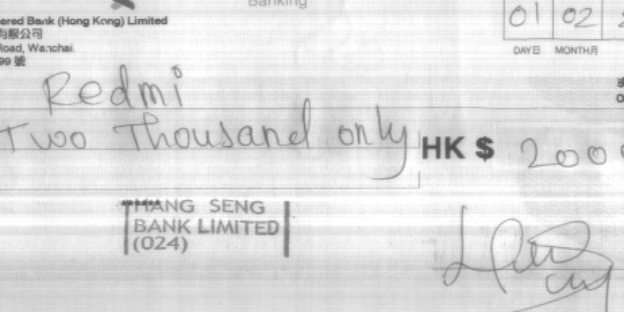 Banking
ered Bank (Hong Kong) Limited
有限公司
Road, Wanchai
99 號
01 02
DAY日 MONTH月
Redmi
Two Thousand only HK $ 2000
HANG SENG
BANK LIMITED
(024)